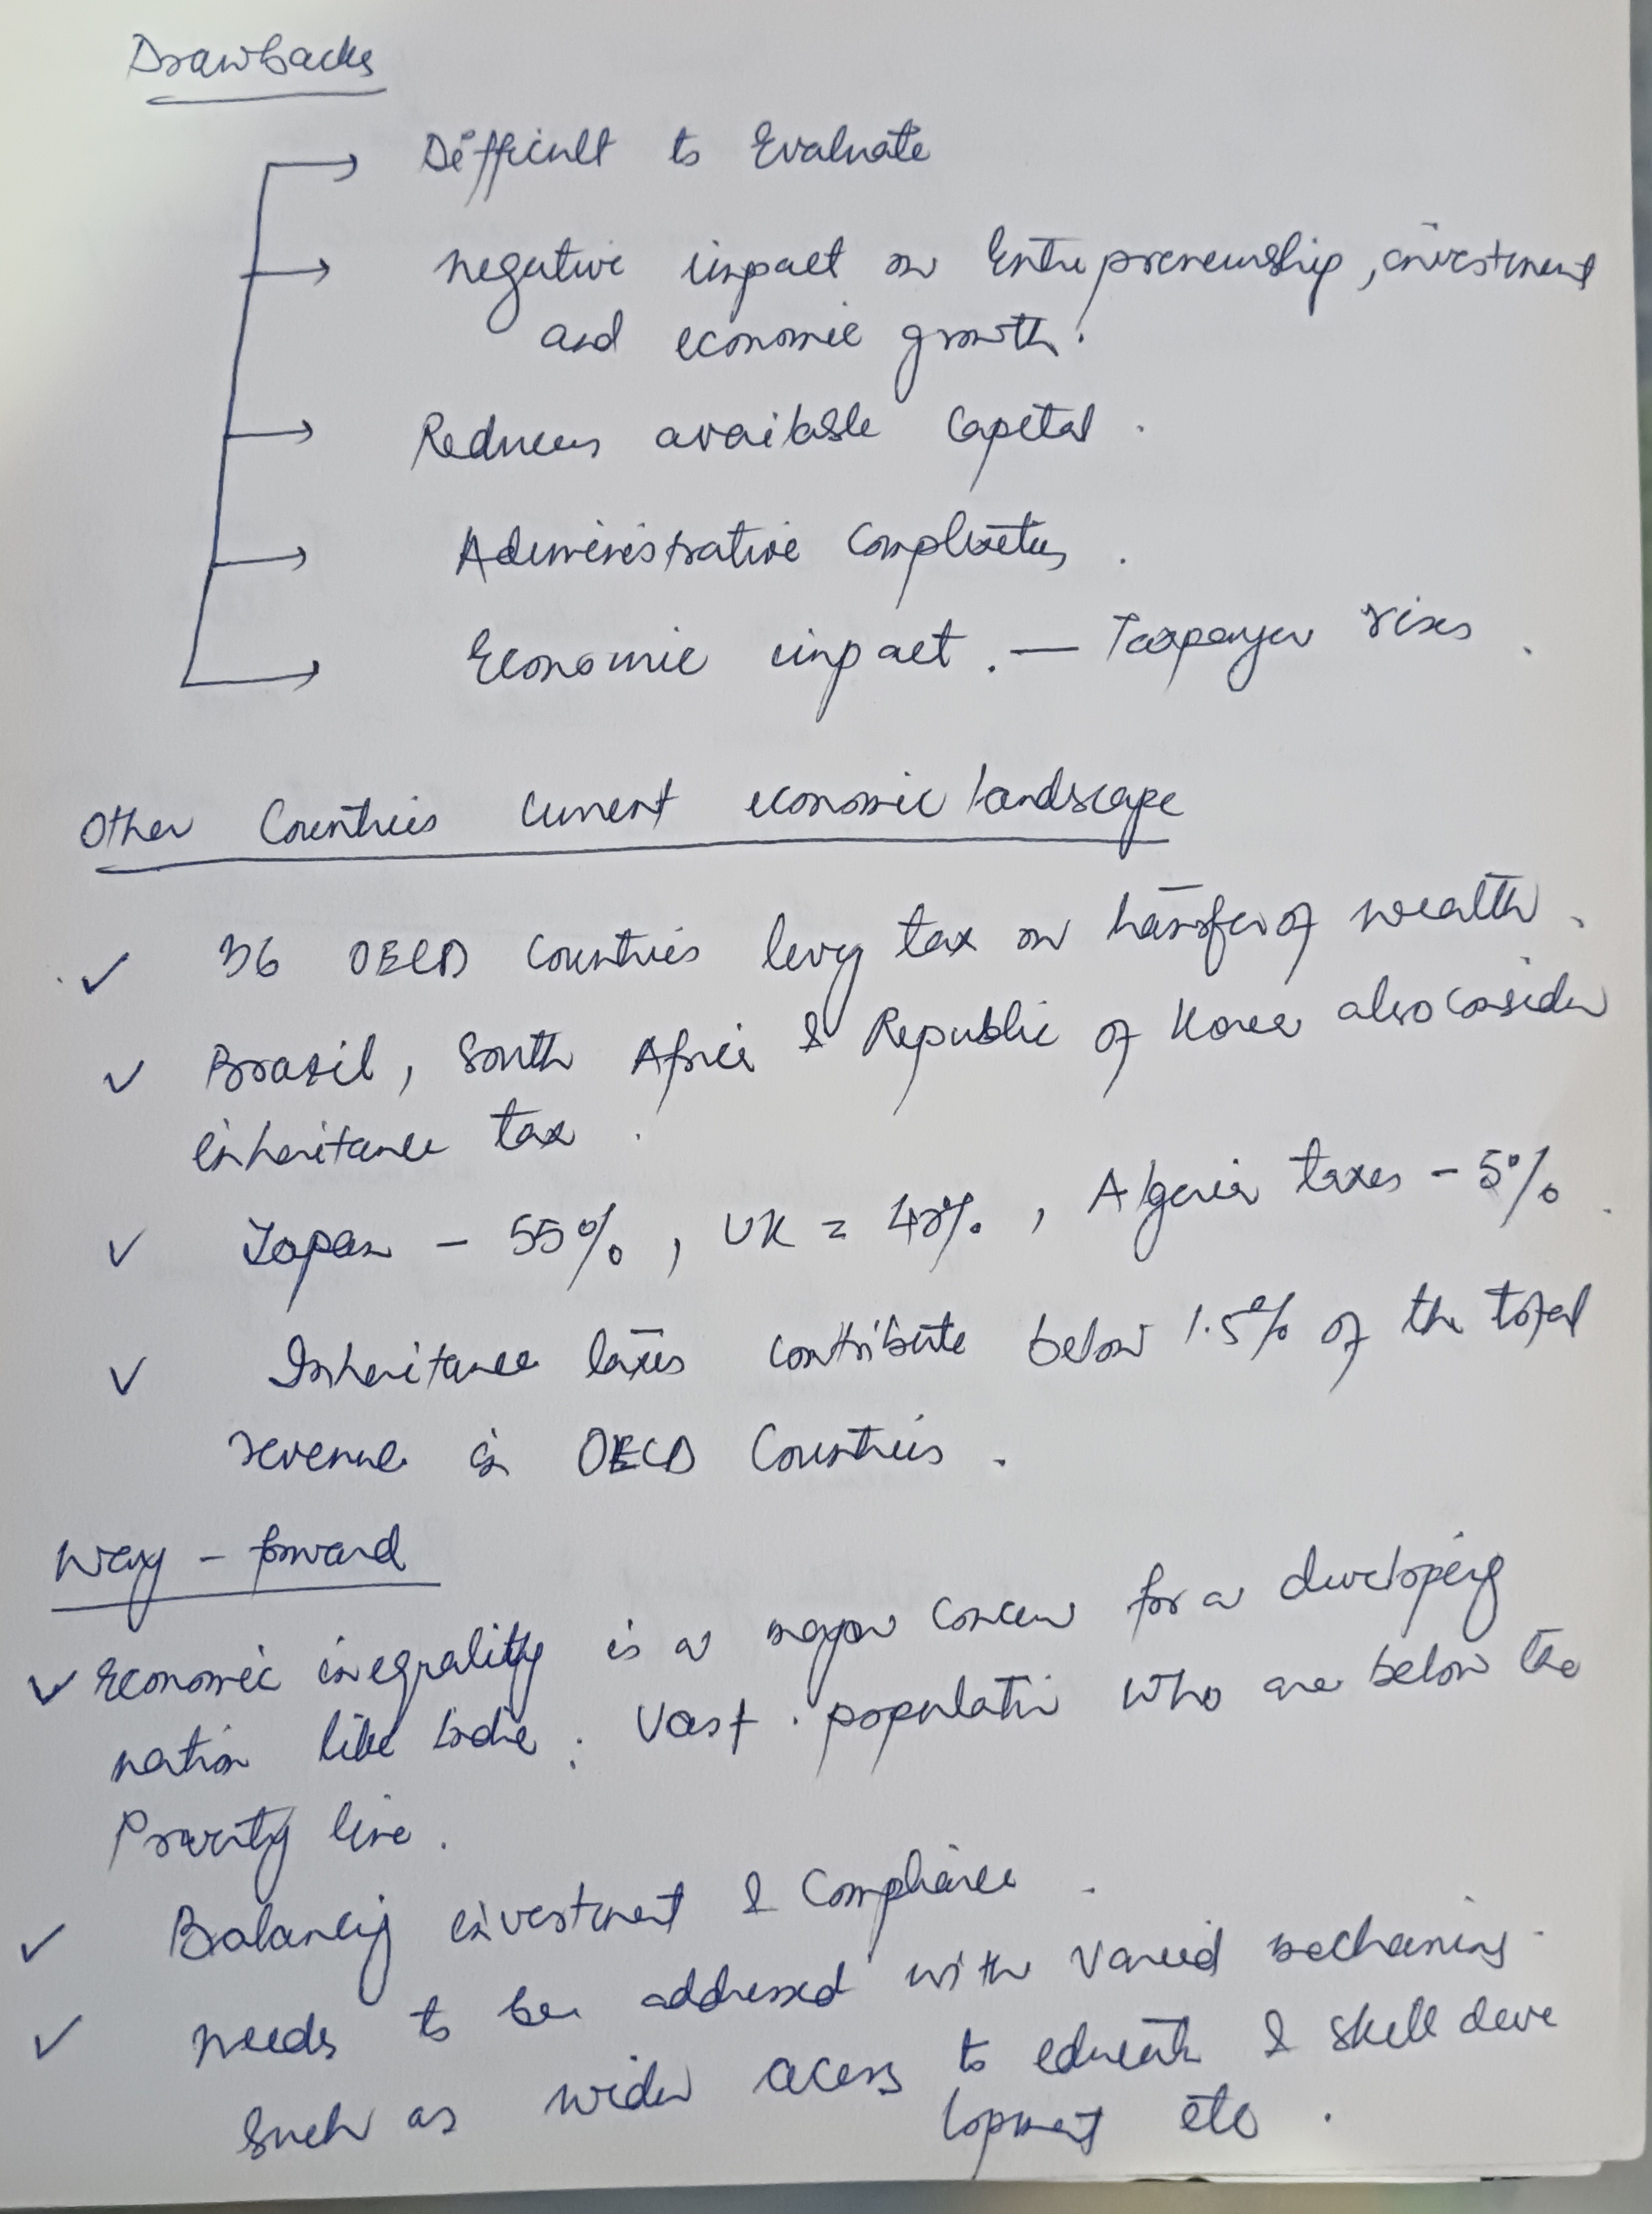 Drawbacks
Difficult to Evaluate
negative impact on Entrepreneurship, investment
and economic growth.
Reduces available Capital.
Administrative Complexities.
Economic impact. — Taxpayer rises.
Other Countries Current economic landscape
36 OECD Countries levy tax on transfer of wealth.
Brazil, South Africa & Republic of Korea also consider
inheritance tax.
Japan - 55%, UK = 40%, Algeria taxes - 5%.
Inheritance taxes contribute below 1.5% of the total
revenue in OECD Countries.
Way - forward
Economic inequality is a major concern for a developing
nation like India; Vast population who are below the
Poverty line.
Balancing investment & Compliance.
Needs to be addressed with Varied mechanisms
such as wider acess to education & skill deve
lopment etc.